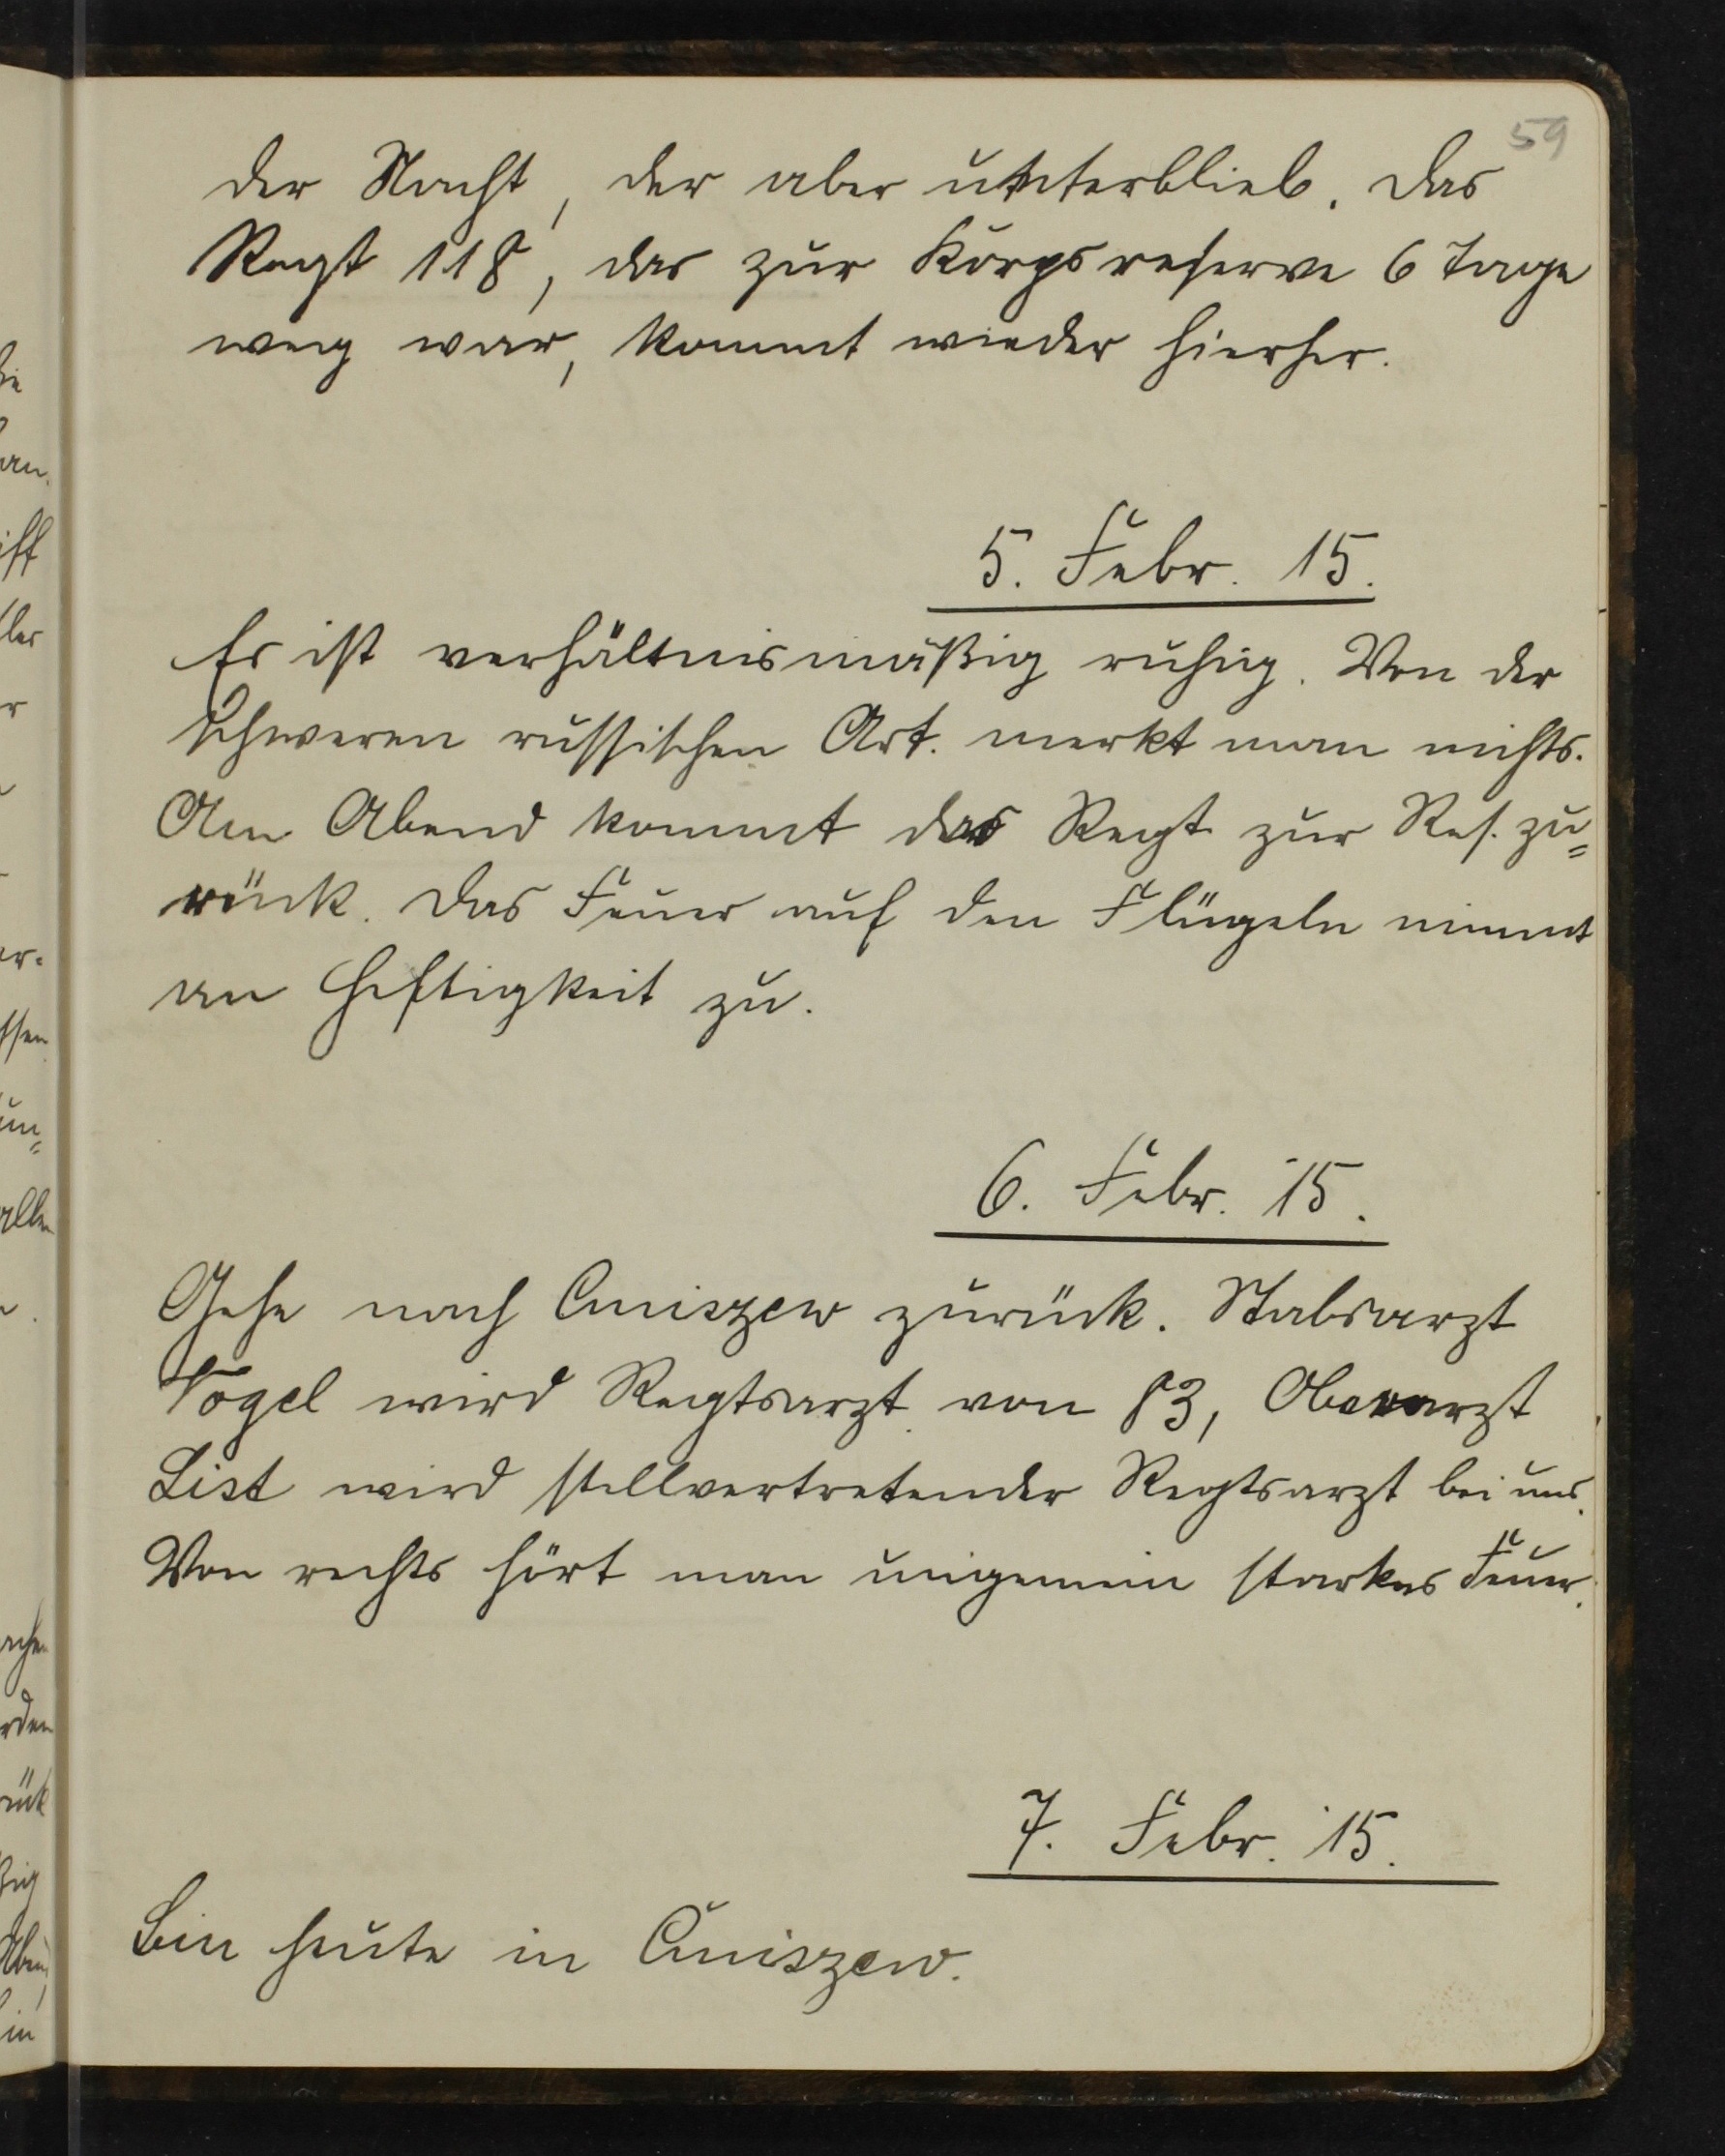 59
der Nacht, der aber unterblieb. Das
Regt 118, das zur Korpsreserve 6 Tage
weg war, kommt wieder hierher.
5. Febr. 15.
Es ist verhältnismäßig ruhig. Von der
schweren russischen Art. merkt man nichts.
Am Abend kommt das Regt zur Res. zu=
rück. Das Feuer auf den Flügeln nimmt
an Heftigkeit zu.
6. Febr. 15.
Gehe nach Cmiszew zurück. Stabsarzt
Vogel wird Regtsarzt von 83, Oberarzt
List wird stellvertretender Regtsarzt bei uns.
Von rechts hört man ungemein starkes Feuer.
7. Febr. 15.
Bin heute in Cmiszew.